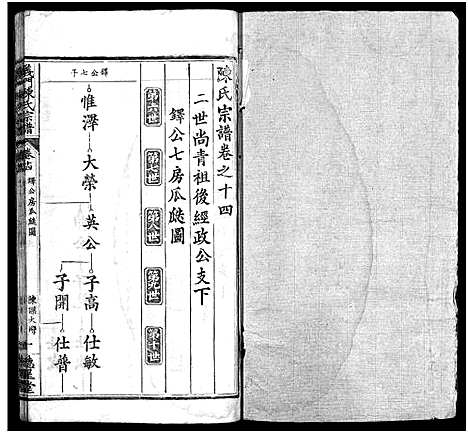 陳氏宗譜卷之十四
二世尚青祖後經政公支下
鐸公七房瓜瓞圖
第六世
第七世
第八世
第九世
第十世
鐸公七子
惟澤
大榮
英公
子高
仕敏
子開
仕普
義門陳氏宗譜
卷十四
鐸公房瓜瓞圖
一
德星堂